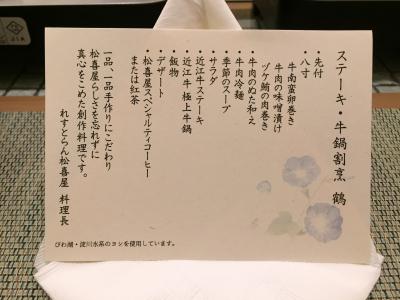 ステーキ・牛鍋割烹 鶴
・先付
・八寸
牛南蛮卵巻き
牛肉の味噌漬け
ヅケ鮪の肉巻き
牛肉のぬた和え
・牛肉冷麺
・季節のスープ
・サラダ
・近江牛ステーキ
・近江牛極上牛鍋
・飯物
・デザート
・松喜屋スペシャルティコーヒー
または紅茶
一品、一品手作りにこだわり
松喜屋らしさを忘れずに
真心をこめた創作料理です。
れすとらん松喜屋 料理長
びわ湖・淀川水系のヨシを使用しています。